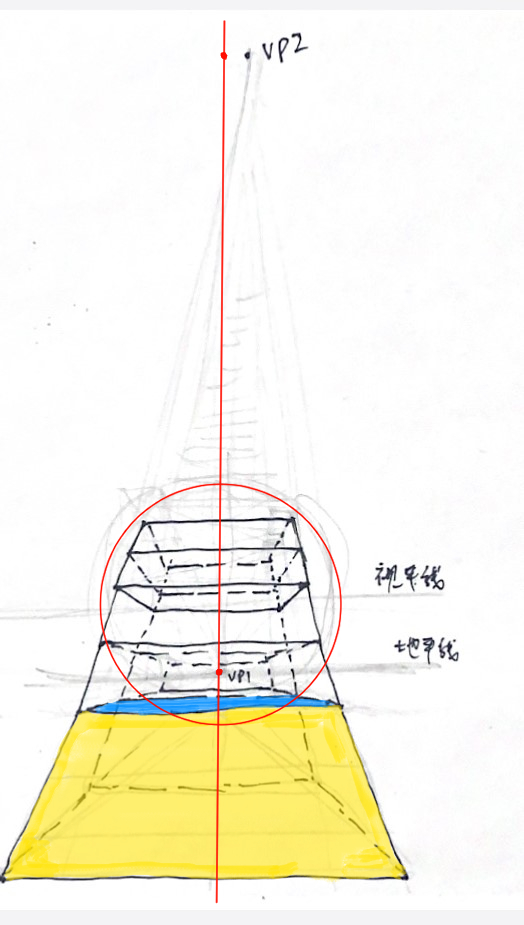 VP2
视平线
地平线
VP1